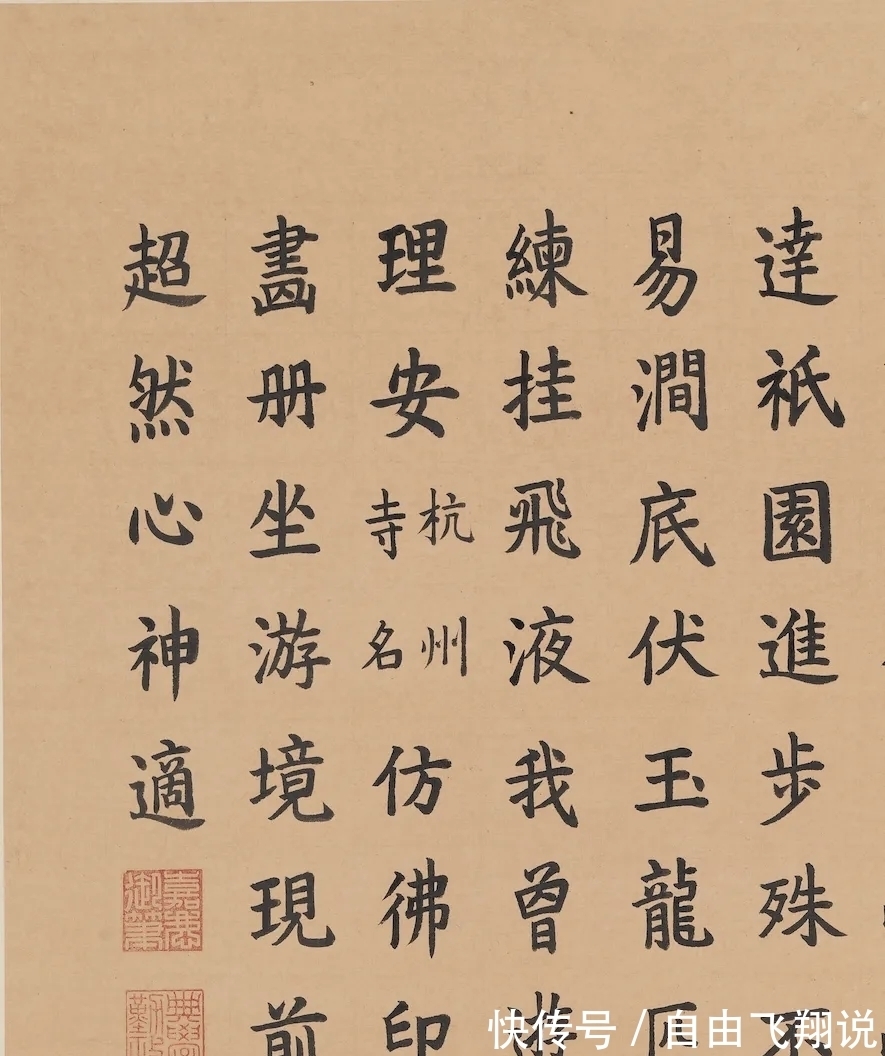 達祇園進步殊不
易澗底伏玉龍匹
練挂飛液我曾游
理安杭州寺名仿彿印
畫册坐游境現前
超然心神適
嘉慶御筆
快传号/自由飞翔说